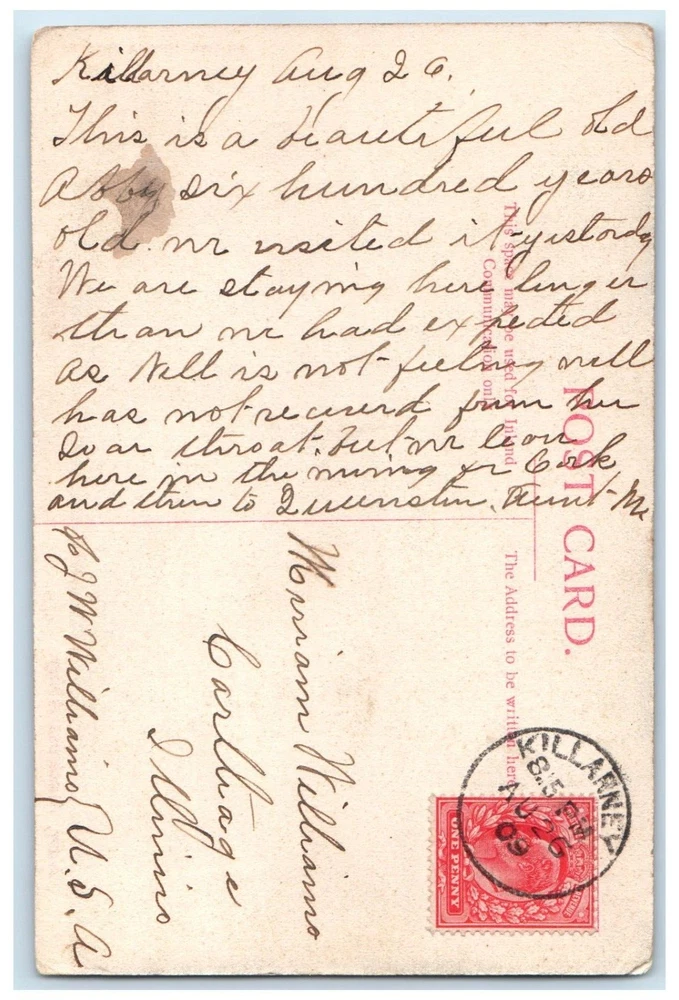 Killarney Aug 26.
This is a beautiful old
Abby six hundred years
old. we visited it yestorday
We are staying here longer
than we had expected
as Nell is not feeling well
has not recoverd from her
soar throat. but we leave
here in the morning for Cork
and then to Queenstown. Aunt M
This space may be used for Inland
Communication only
POST CARD.
The Address to be written here
Miriam Williams
Carthage
Illinois
c/o J W Williams U.S.A
KILLARNEY
8.5 PM
AU 26
09
ONE PENNY